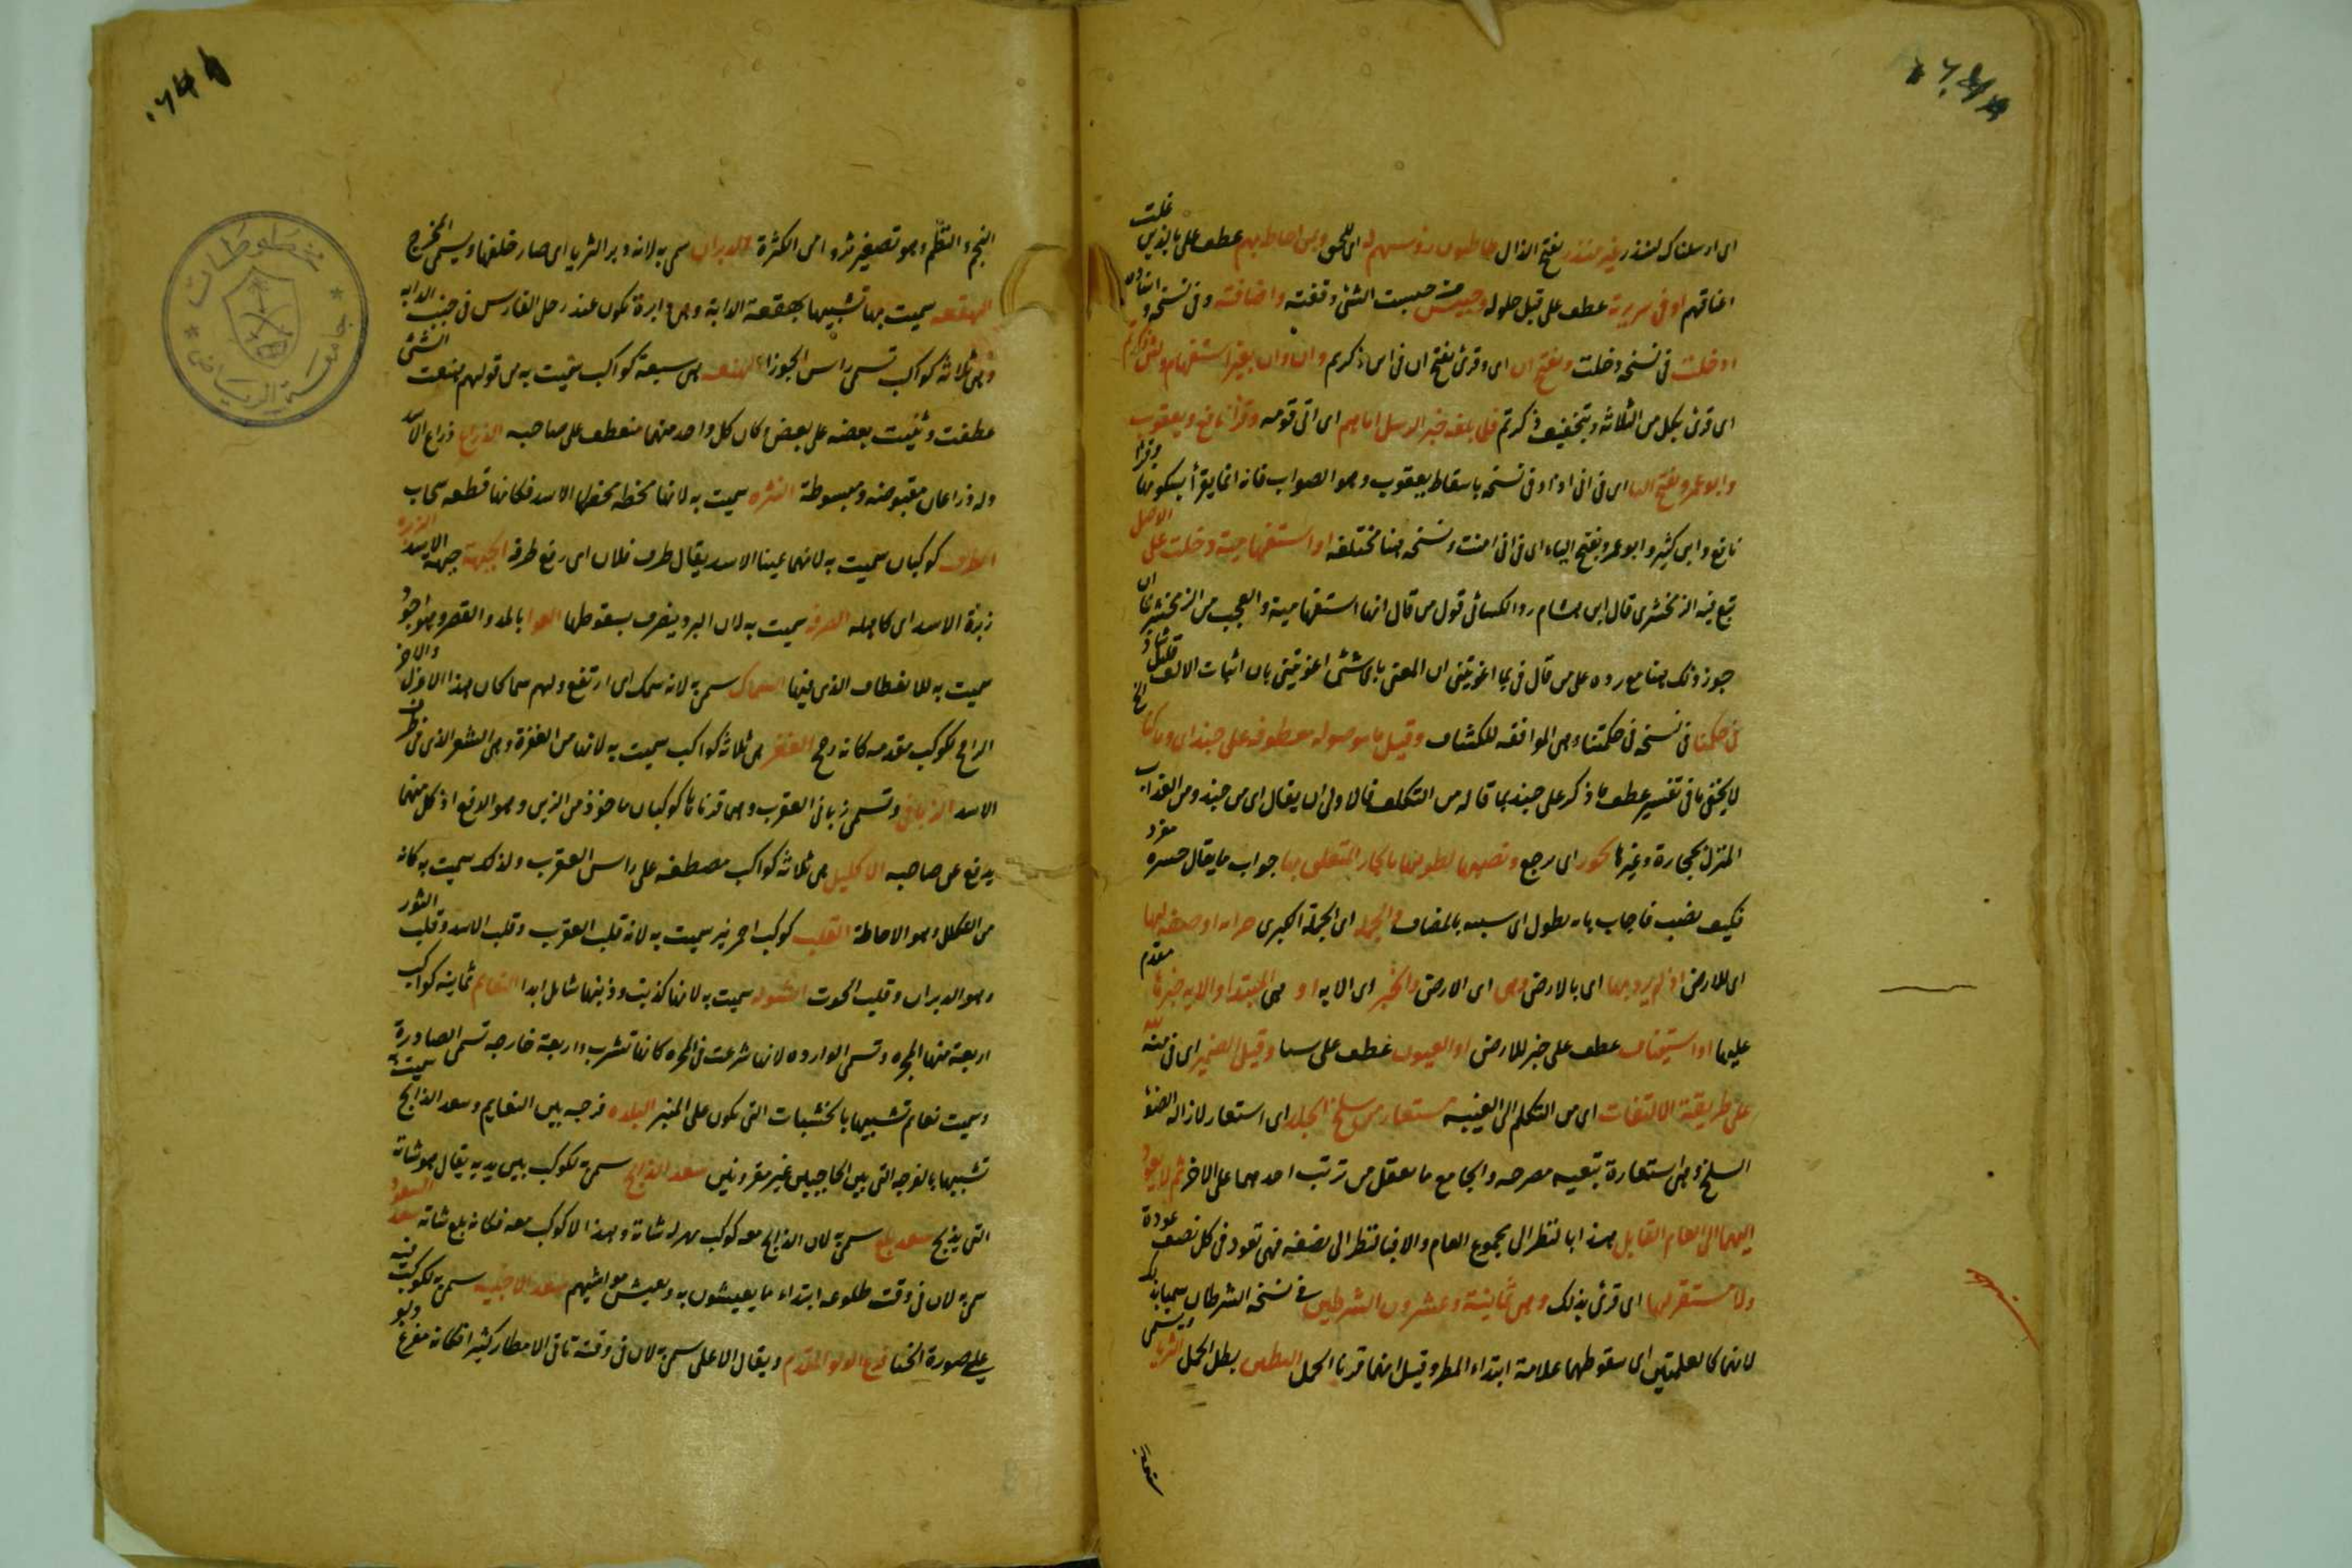 اى ارسلناك لتنذر غير منذر بفتح الذال رؤسهم له اى للحق وبمن احاط بهم عطف على بالذين غلت
اعناقهم او فى سريرته عطف على قبل حلوله وحبيس من حبست الشئ وقفته واضافته وفى نسخه و
ادخلت فى نسخه دخلت وبفتح ان اى وقرئ بفتح ان فى اين ذكرتم وان وان بغير استفهام
اى قرئ بكل من الثلاثة وبتخفيف ذكرتم فلما بلغه خبر الرسل اتاهم اى اتى قومه وقرأ نافع ويعقوب
وابو عمرو بفتح اليا اى فى انى اذا وفى نسخه باسقاط يعقوب وهو الصواب فانه انما يقرأ بسكونها وقرا
نافع وابن كثير وابو عمرو بفتح الياء اى فى انى امنت ونسخه هنا مختلفه او استفهامية دخلت على الاصل
تبع فيه الزمخشرى قال ابن هشام رد الكسائى قول من قال انها استفهامية والعجب من الزمخشرى ان
جوز ذلك هنا مع رده على من قال فى بما اغويتنى ان المعنى باى شئ اغويتنى بان اثبات الالف قليل شاذ
فى حكمنا فى نسخه فى حكمتنا وهى الموافقه للكشاف وقيل ما موصوله معطوفه على جند اى وما كنا
لا يخفى ما فى تفسير عطف ما ذكر على جند بما قاله من التكلف فالاولى ان يقال اى من جند ومن العذاب
المنزل بحجارة وغيرها تحور اى مرجع ونصبها لطولها بالجار المتعلق بها جواب ما يقال حسره مفرد
فكيف نصب فاجاب بانه بطول اى سببه بالمضاف فى الجمله اى الجملة الكبرى خبرا او صفه لها
اى للارض اذ لم يرد بها اى بالارض وهى اى الارض والخبر اى الايه او هى المبتدا والايه خبرها مقدم
عليها او استيناف عطف على خبر للارض او العيون عطف على سبا وقيل الضمير اى فى منه لله
على طريقة الالتفات اى من التكلم الى الغيبه مستعار من سلخ الجلد اى استعار لازاله الضوء
السلخ وهى استعارة تبعيه مصرحه والجامع ما يعقل من ترتب احدهما على الاخر ثم لا يعود
اليها الى العام القابل هذا بالنظر الى مجموع العام والا فبالنظر الى نصفه فهى تعود فى كل نصف عودة
ولا مستقر لها اى قرئ بذلك وهى ثمانية وعشرون الشرطين فى نسخه الشرطان سميا بذلك
لانهما كالعلمتين اى سقوطهما علامة ابتداء المطر وقيل انهما قرنا الحمل البطين بطن الحمل الثريا ويسمى
النجم والنظم وهو تصغير ثروا من الكثرة الدبران سمى به لانه دبر الثريا اى صار خلفها ويسمى المخدج
الهقعه سميت بها تشبيها بهقعة الدابة وهى دايرة تكون عند رحل الفارس فى جنب الدابه
وهى ثلاثة كواكب تسمى راس الجوزاء الهنعه هى سبعة كواكب سميت به من قولهم هنعت الشئ
عطفت وثنيت بعضه على بعض وكان كل واحد منهما منعطف على صاحبه الذراع ذراع الاسد
وله ذراعان مقبوضه ومبسوطة النثره سميت به لانها مخطه مخطها الاسد فكانها قطعه سحاب
الطرف كوكبان سميت به لانهما عينا الاسد يقال طرف فلان اى رفع طرفه الجبهة جبهة الاسد الزبره
زبرة الاسد اى كاهله الصرفه سميت به لان البرد ينصرف بسقوطها العوا بالمد والقصر وهو اجود
سميت به للانعطاف الذى فيها السماك سمى به لانه سمك اى ارتفع ولهم سماكان هذا الاعزل والاخر
الرامح لكوكب مقدمه كانه رمح الغفر هى ثلاثة كواكب سميت به لانها من الغفرة وهى الشعر الذى فى طرف
الاسد الزبانى وتسمى زبانى العقرب وهما قرناها كوكبان ماخوذ من الزبن وهو الدفع اذ كل منهما
يدفع عن صاحبه الاكليل هى ثلاثة كواكب مصطفه على راس العقرب ولذلك سميت به كانه
من التكلل وهو الاحاطة القلب كوكب احمر نير سميت به لانه قلب العقرب وقلب الاسد وقلب الثور
وهو الدبران وقلب الحوت الشوله سميت به لانها كذنبت وذنبها شامل ابدا النعايم ثمانية كواكب
اربعة منها المجره وتسمى الوارده لانها شرعت فى المجره كانها تشرب واربعة خارجه تسمى الصادرة
وسميت نعايم تشبيها بالخشبات التى تكون على البئر البلده فرجه بين النعايم وسعد الذابح سميت
تشبيها بالفرجه التى بين الحاجبين غير مقرونين سعد الذابح سمى به لكوكب بين يديه يقال هو شاته
التى يذبح سعد بلع سمى به لان الذابح معه كوكب بمنزله شاة وهذا لا كوكب معه فكانه بلع شاته سعد السعود
سمى به لان فى وقت طلوعه ابتداء ما يعيشون به ويعيش مواشيهم سعد الاخبيه سمى به لكوكب
على صورة الخبا فرغ الدلو المقدم ويقال الاعلى سمى به لان فى وقته تاتى الامطار كثيرا فكانه مفرغ
مخطوطات
جامعة الرياض